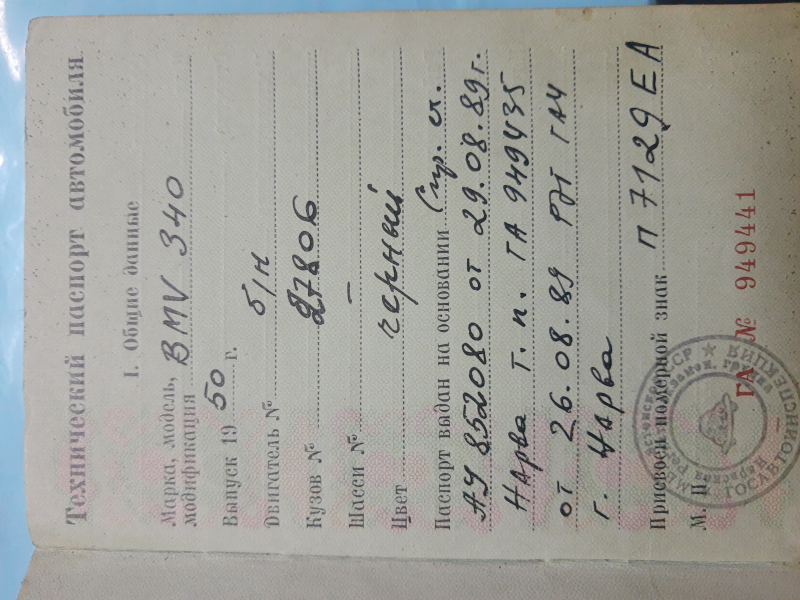 Технический паспорт автомобиля
1. Общие данные
Марка, модель,
модификация BMV 340
Выпуск 19 50 г.
Двигатель № б/н
Кузов № 27806
Шасси № —
Цвет черный
Паспорт выдан на основании Спр. сч.
АУ 852080 от 29.08.89г.
Нарва т.п. ГА 949435
от 26.08.89 РЭП ГАИ
г. Нарва
Присвоен номерной знак П 7129 ЕА
М. П.
ГА № 949441
ГОСАВТОИНСПЕКЦИЯ